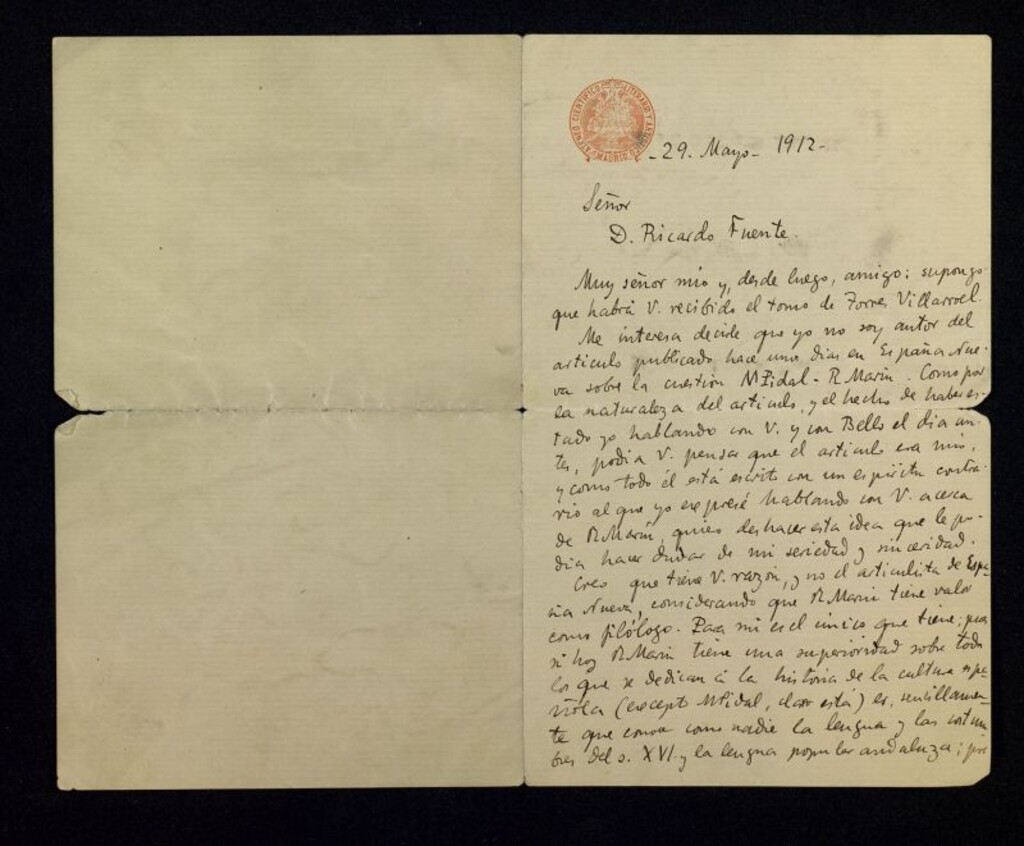 ATENEO CIENTÍFICO LITERARIO Y ARTÍSTICO MADRID
- 29. Mayo - 1912 -
Señor
D. Ricardo Fuente.
Muy señor mio y, desde luego, amigo: supongo
que habrá V. recibido el tomo de Torres Villarroel.
Me interesa decirle que yo no soy autor del
articulo publicado hace unos dias en España Nue-
va sobre la cuestión MPidal - R. Marín. Como por
la naturaleza del articulo, y el hecho de haber es-
tado yo hablando con V. y con Bello el dia an-
tes, podia V. pensar que el articulo era mio,
y como todo él está escrito con un espíritu contra-
rio al que yo expresé hablando con V. acerca
de R. Marín, quiero deshacer esta idea que le po-
dia hacer dudar de mi seriedad y sinceridad.
Creo que tiene V. razón, y no el articulista de Espa-
ña Nueva, considerando que R. Marín tiene valor
como filólogo. Para mi es el único que tiene; pues
si hoy R. Marín tiene una superioridad sobre todos
los que se dedican á la historia de la cultura espa-
ñola (excepto MPidal, claro está) es, sencillamen-
te que conoce como nadie la lengua y las costum-
bres del s. XVI y la lengua popular andaluza; por